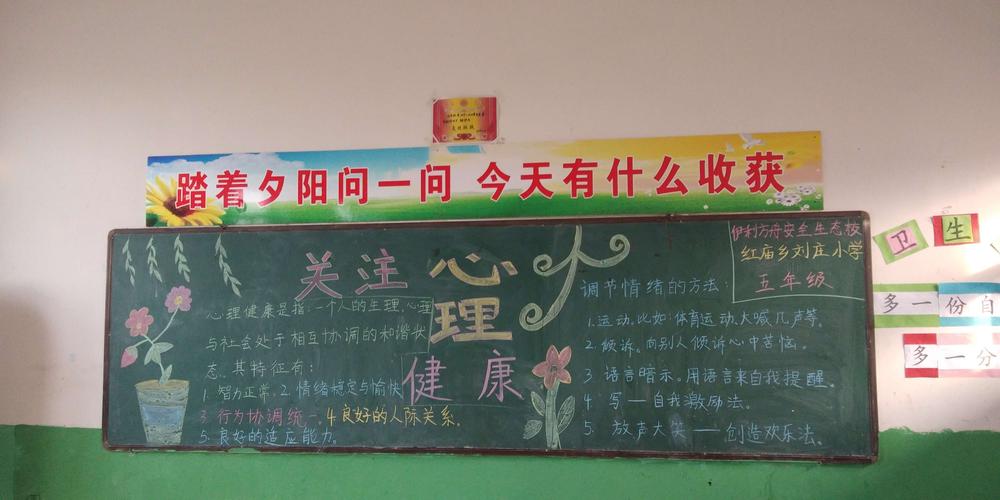 踏着夕阳问一问 今天有什么收获
关注心理健康
心理健康是指:一个人的生理、心理
与社会处于相互协调的和谐状
态。其特征有:
1. 智力正常。2. 情绪稳定与愉快
3. 行为协调统一 4. 良好的人际关系.
5. 良好的适应能力.
伊利方舟安全生态校
红庙乡刘庄小学
五年级
调节情绪的方法:
1. 运动. 比如:体育运动、大喊几声等。
2. 倾诉。向别人倾诉心中苦恼。
3 语言暗示。用语言来自我提醒。
4. 写——自我激励法。
5. 放声大笑——创造欢乐法。
卫生
多一份自
多一分